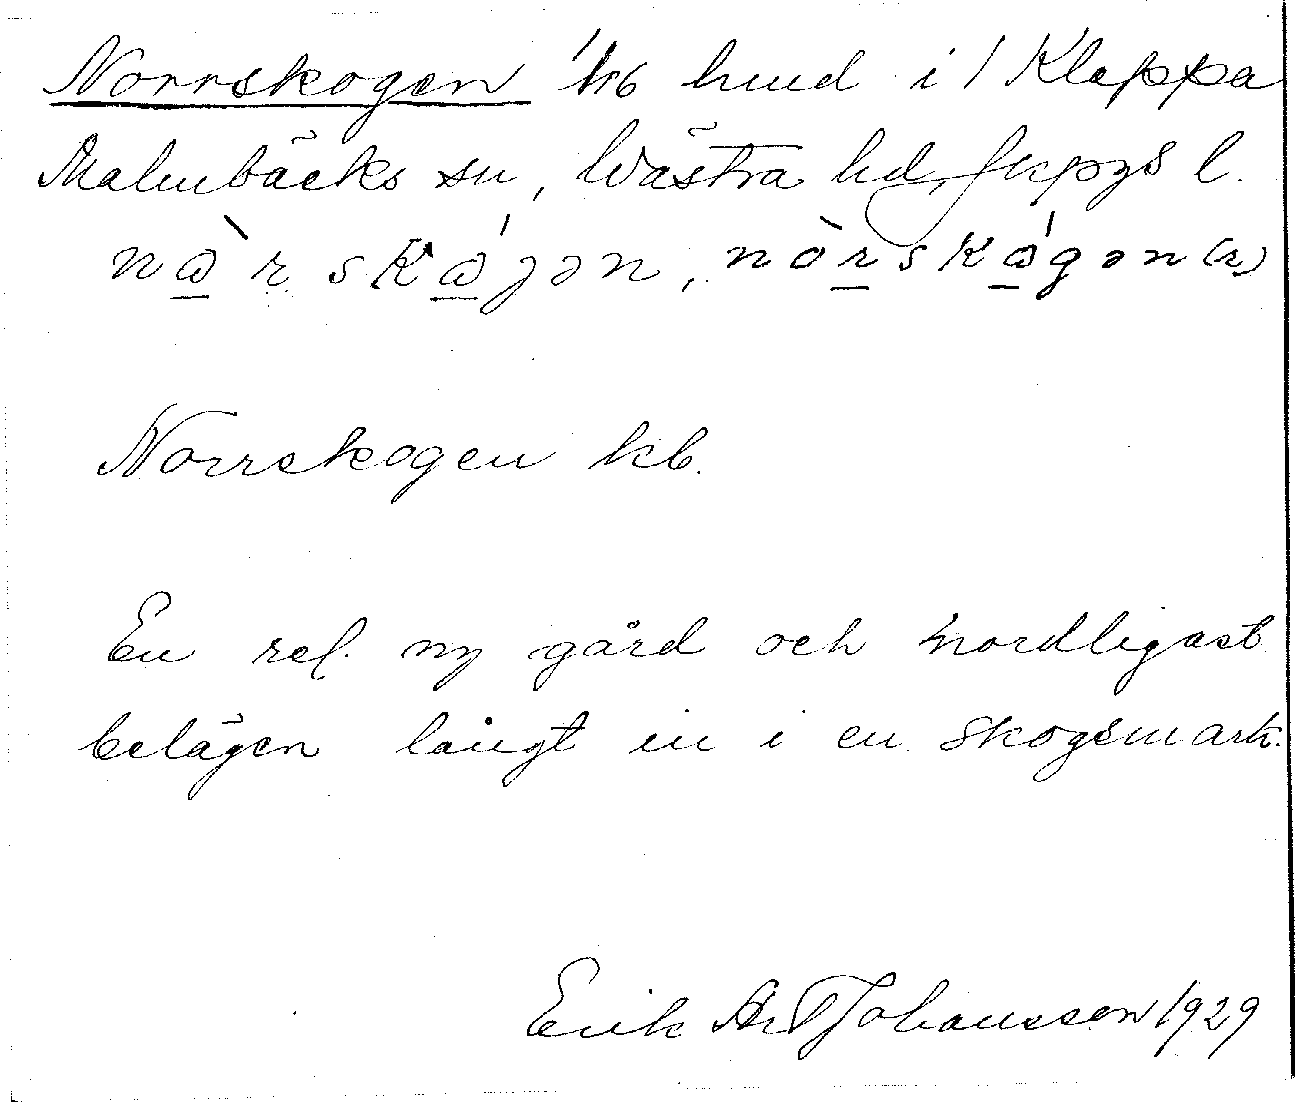 Norrskogen 1/16 hmd i 1 Kleppa
Malmbäcks sn, Västra hd, Jkpgs l.
nòrskógən, nòrskógən(r)
Norrskogen kb.
En rel. ny gård och nordligast
belägen långt in i en skogsmark.
Erik Johansson 1929